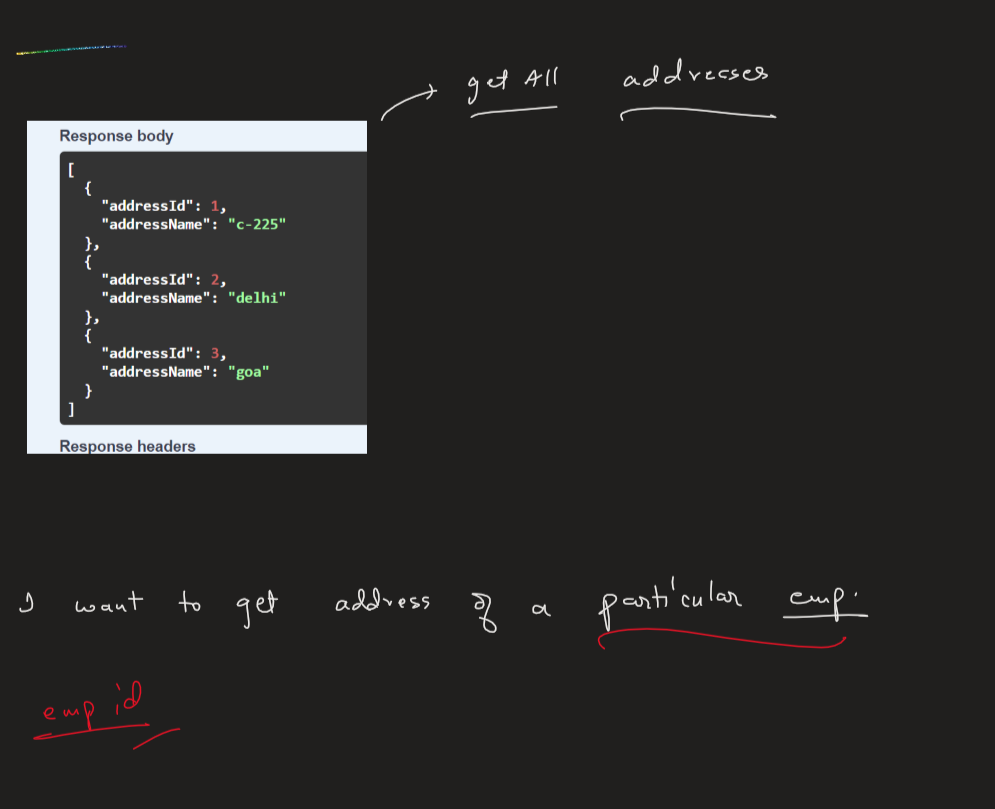 get All addresses
Response body
[
{
"addressId": 1,
"addressName": "c-225"
},
{
"addressId": 2,
"addressName": "delhi"
},
{
"addressId": 3,
"addressName": "goa"
}
]
Response headers
I want to get address of a particular emp.
emp id